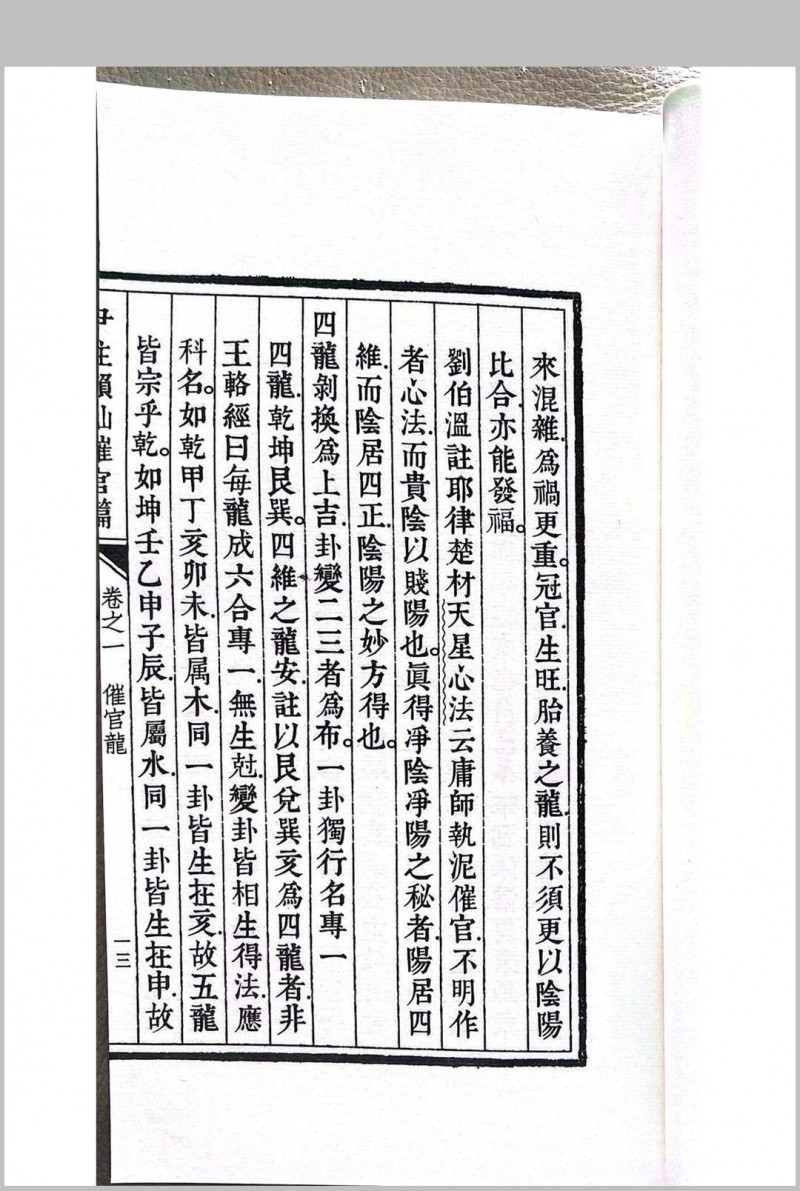 來混雜.爲禍更重。冠官.生旺.胎養之龍.則不須更以陰陽
比合.亦能發福。
劉伯溫註耶律楚材天星心法云庸師執泥催官.不明作
者心法.而貴陰以賤陽也。眞得淨陰淨陽之秘者.陽居四
維.而陰居四正.陰陽之妙方得也。
四龍剝換爲上吉.卦變二三者爲布。一卦獨行名專一
四龍.乾坤艮巽。四維之龍安.註以艮兌巽亥爲四龍者.非
王輅經曰每龍成六合專一.無生尅.變卦皆相生得法.應
科名。如乾甲丁亥卯未.皆属木.同一卦皆生在亥.故五龍
皆宗乎乾。如坤壬乙申子辰.皆屬水.同一卦皆生在申.故
註賴仙催官篇
卷之一 催官龍
一三